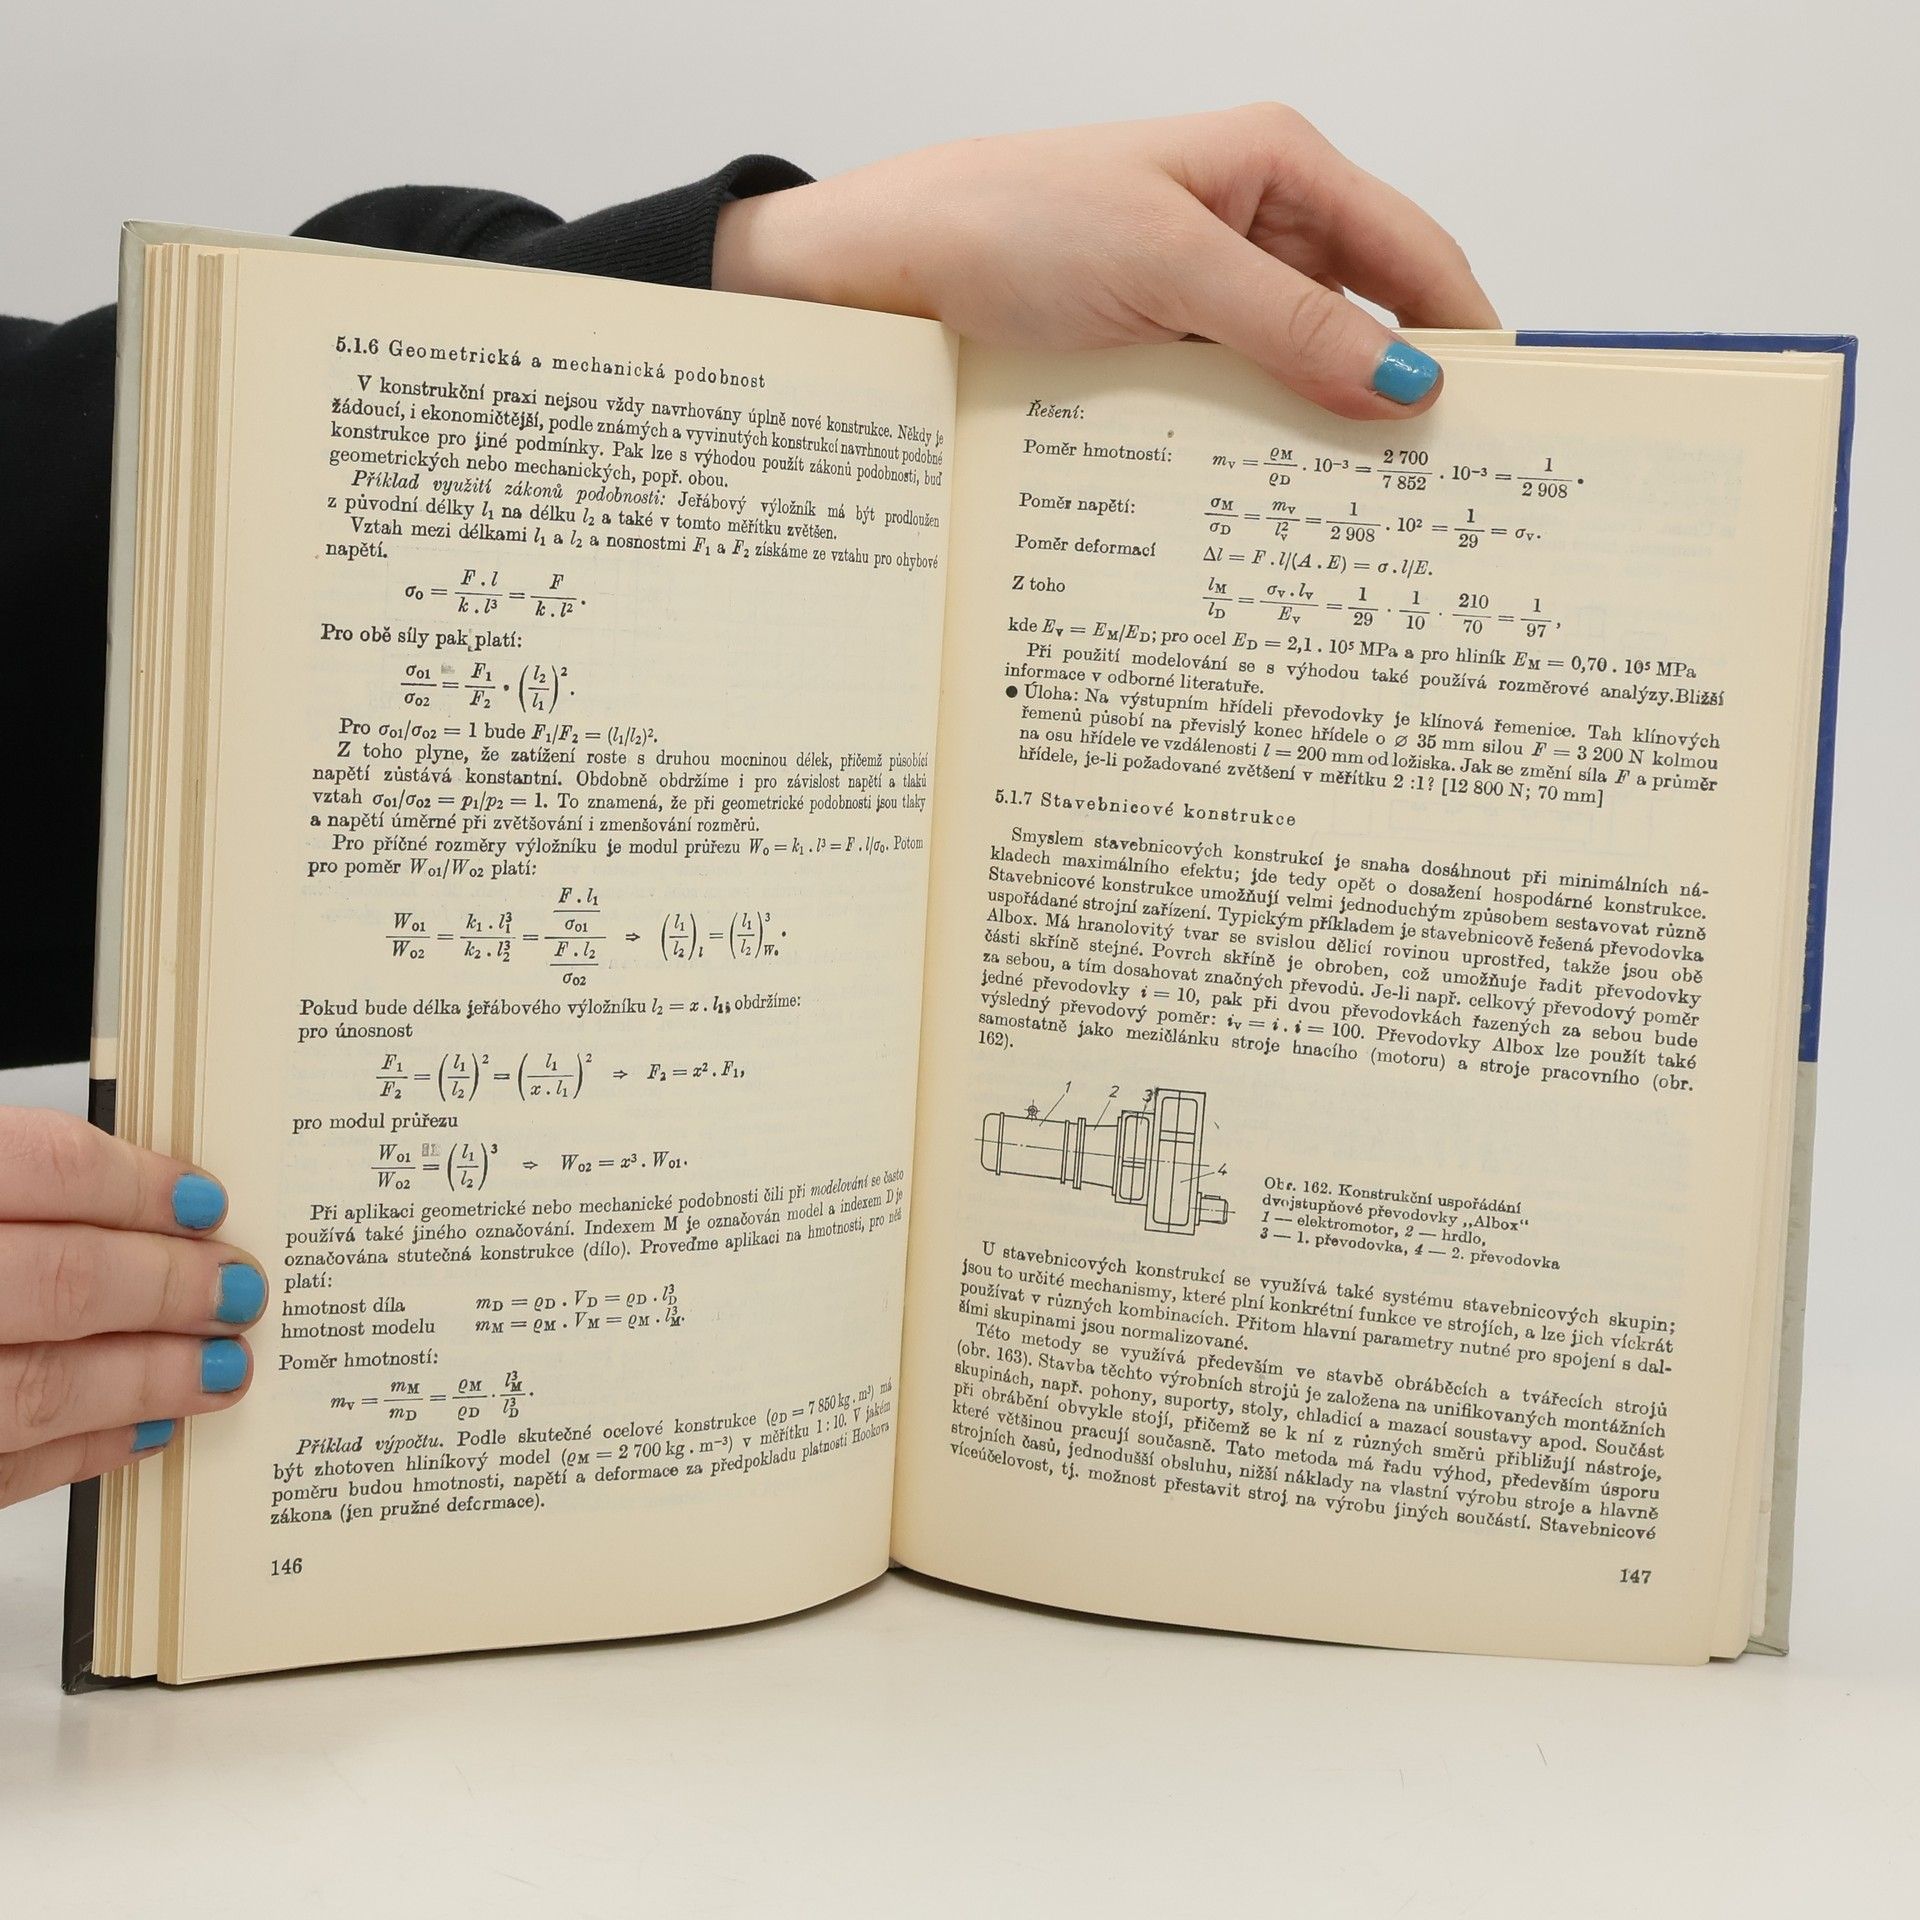 5.1.6 Geometrická a mechanická podobnost
V konstrukční praxi nejsou vždy navrhovány úplně nové konstrukce. Někdy je
žádoucí, i ekonomičtější, podle známých a vyvinutých konstrukcí navrhnout podobné
konstrukce pro jiné podmínky. Pak lze s výhodou použít zákonů podobnosti, buď
geometrických nebo mechanických, popř. obou.
Příklad využití zákonů podobnosti: Jeřábový výložník má být prodloužen
z původní délky l₁ na délku l₂ a také v tomto měřítku zvětšen.
Vztah mezi délkami l₁ a l₂ a nosnostmi F₁ a F₂ získáme ze vztahu pro ohybové
napětí.
σ₀ = F . l / k . l³ = F / k . l² .
Pro obě síly pak platí:
σ₀₁ / σ₀₂ = F₁ / F₂ . (l₂ / l₁)² .
Pro σ₀₁/σ₀₂ = 1 bude F₁/F₂ = (l₁/l₂)².
Z toho plyne, že zatížení roste s druhou mocninou délek, přičemž působící
napětí zůstává konstantní. Obdobně obdržíme i pro závislost napětí a tlaků
vztah σ₀₁/σ₀₂ = p₁/p₂ = 1. To znamená, že při geometrické podobnosti jsou tlaky
a napětí úměrné při zvětšování i zmenšování rozměrů.
Pro příčné rozměry výložníku je modul průřezu W₀ = k₁ . l³ = F . l/σ₀. Potom
pro poměr W₀₁/W₀₂ platí:
W₀₁ / W₀₂ = k₁ . l₁³ / k₂ . l₂³ = (F . l₁ / σ₀₁) / (F . l₂ / σ₀₂) ⇒ (l₁ / l₂)ₗ = (l₁ / l₂)³ W₀ .
Pokud bude délka jeřábového výložníku l₂ = x . l₁; obdržíme:
pro únosnost
F₁ / F₂ = (l₁ / l₂)² = (l₁ / x . l₁)² ⇒ F₂ = x² . F₁,
pro modul průřezu
W₀₁ / W₀₂ = (l₁ / l₂)³ ⇒ W₀₂ = x³ . W₀₁.
Při aplikaci geometrické nebo mechanické podobnosti čili při modelování se často
používá také jiného označování. Indexem M je označován model a indexem D je
označována stutečná konstrukce (dílo). Proveďme aplikaci na hmotnosti, pro něž
platí:
hmotnost díla m_D = ϱ_D . V_D = ϱ_D . l_D³
hmotnost modelu m_M = ϱ_M . V_M = ϱ_M . l_M³.
Poměr hmotností:
m_v = m_M / m_D = ϱ_M / ϱ_D . l_M³ / l_D³ .
Příklad výpočtu. Podle skutečné ocelové konstrukce (ϱ_D = 7 850 kg . m³) má
být zhotoven hliníkový model (ϱ_M = 2 700 kg . m⁻³) v měřítku 1 : 10. V jakém
poměru budou hmotnosti, napětí a deformace za předpokladu platnosti Hookova
zákona (jen pružné deformace).
146
Řešení:
Poměr hmotností: m_v = ϱ_M / ϱ_D . 10⁻³ = 2 700 / 7 852 . 10⁻³ = 1 / 2 908 .
Poměr napětí: σ_M / σ_D = m_v / l_v² = 1 / 2 908 . 10² = 1 / 29 = σ_v.
Poměr deformací Δl = F . l/(A . E) = σ . l/E.
Z toho l_M / l_D = σ_v . l_v / E_v = 1 / 29 . 1 / 10 . 210 / 70 = 1 / 97 ,
kde E_v = E_M/E_D; pro ocel E_D = 2,1 . 10⁵ MPa a pro hliník E_M = 0,70 . 10⁵ MPa
Při použití modelování se s výhodou také používá rozměrové analýzy. Bližší
informace v odborné literatuře.
● Úloha: Na výstupním hřídeli převodovky je klínová řemenice. Tah klínových
řemenů působí na převislý konec hřídele o ⌀ 35 mm silou F = 3 200 N kolmou
na osu hřídele ve vzdálenosti l = 200 mm od ložiska. Jak se změní síla F a průměr
hřídele, je-li požadované zvětšení v měřítku 2 :1? [12 800 N; 70 mm]
5.1.7 Stavebnicové konstrukce
Smyslem stavebnicových konstrukcí je snaha dosáhnout při minimálních ná-
kladech maximálního efektu; jde tedy opět o dosažení hospodárné konstrukce.
Stavebnicové konstrukce umožňují velmi jednoduchým způsobem sestavovat různě
uspořádané strojní zařízení. Typickým příkladem je stavebnicově řešená převodovka
Albox. Má hranolovitý tvar se svislou dělicí rovinou uprostřed, takže jsou obě
části skříně stejné. Povrch skříně je obroben, což umožňuje řadit převodovky
za sebou, a tím dosahovat značných převodů. Je-li např. celkový převodový poměr
jedné převodovky i = 10, pak při dvou převodovkách řazených za sebou bude
výsledný převodový poměr: i_v = i . i = 100. Převodovky Albox lze použít také
samostatně jako mezičlánku stroje hnacího (motoru) a stroje pracovního (obr.
162).
1 2 3 4
Obr. 162. Konstrukční uspořádání
dvojstupňové převodovky „Albox“
1 — elektromotor, 2 — hrdlo,
3 — 1. převodovka, 4 — 2. převodovka
U stavebnicových konstrukcí se využívá také systému stavebnicových skupin;
jsou to určité mechanismy, které plní konkrétní funkce ve strojích, a lze jich víckrát
používat v různých kombinacích. Přitom hlavní parametry nutné pro spojení s dal-
šími skupinami jsou normalizované.
Této metody se využívá především ve stavbě obráběcích a tvářecích strojů
(obr. 163). Stavba těchto výrobních strojů je založena na unifikovaných montážních
skupinách, např. pohony, suporty, stoly, chladicí a mazací soustavy apod. Součást
při obrábění obvykle stojí, přičemž se k ní z různých směrů přibližují nástroje,
které většinou pracují současně. Tato metoda má řadu výhod, především úsporu
strojních časů, jednodušší obsluhu, nižší náklady na vlastní výrobu stroje a hlavně
víceúčelovost, tj. možnost přestavit stroj na výrobu jiných součástí. Stavebnicové
147